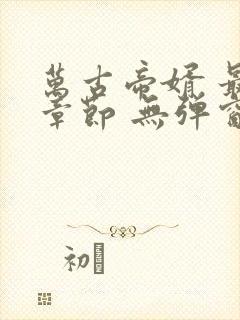 萬古帝婿 最
章節 無彈窗
初